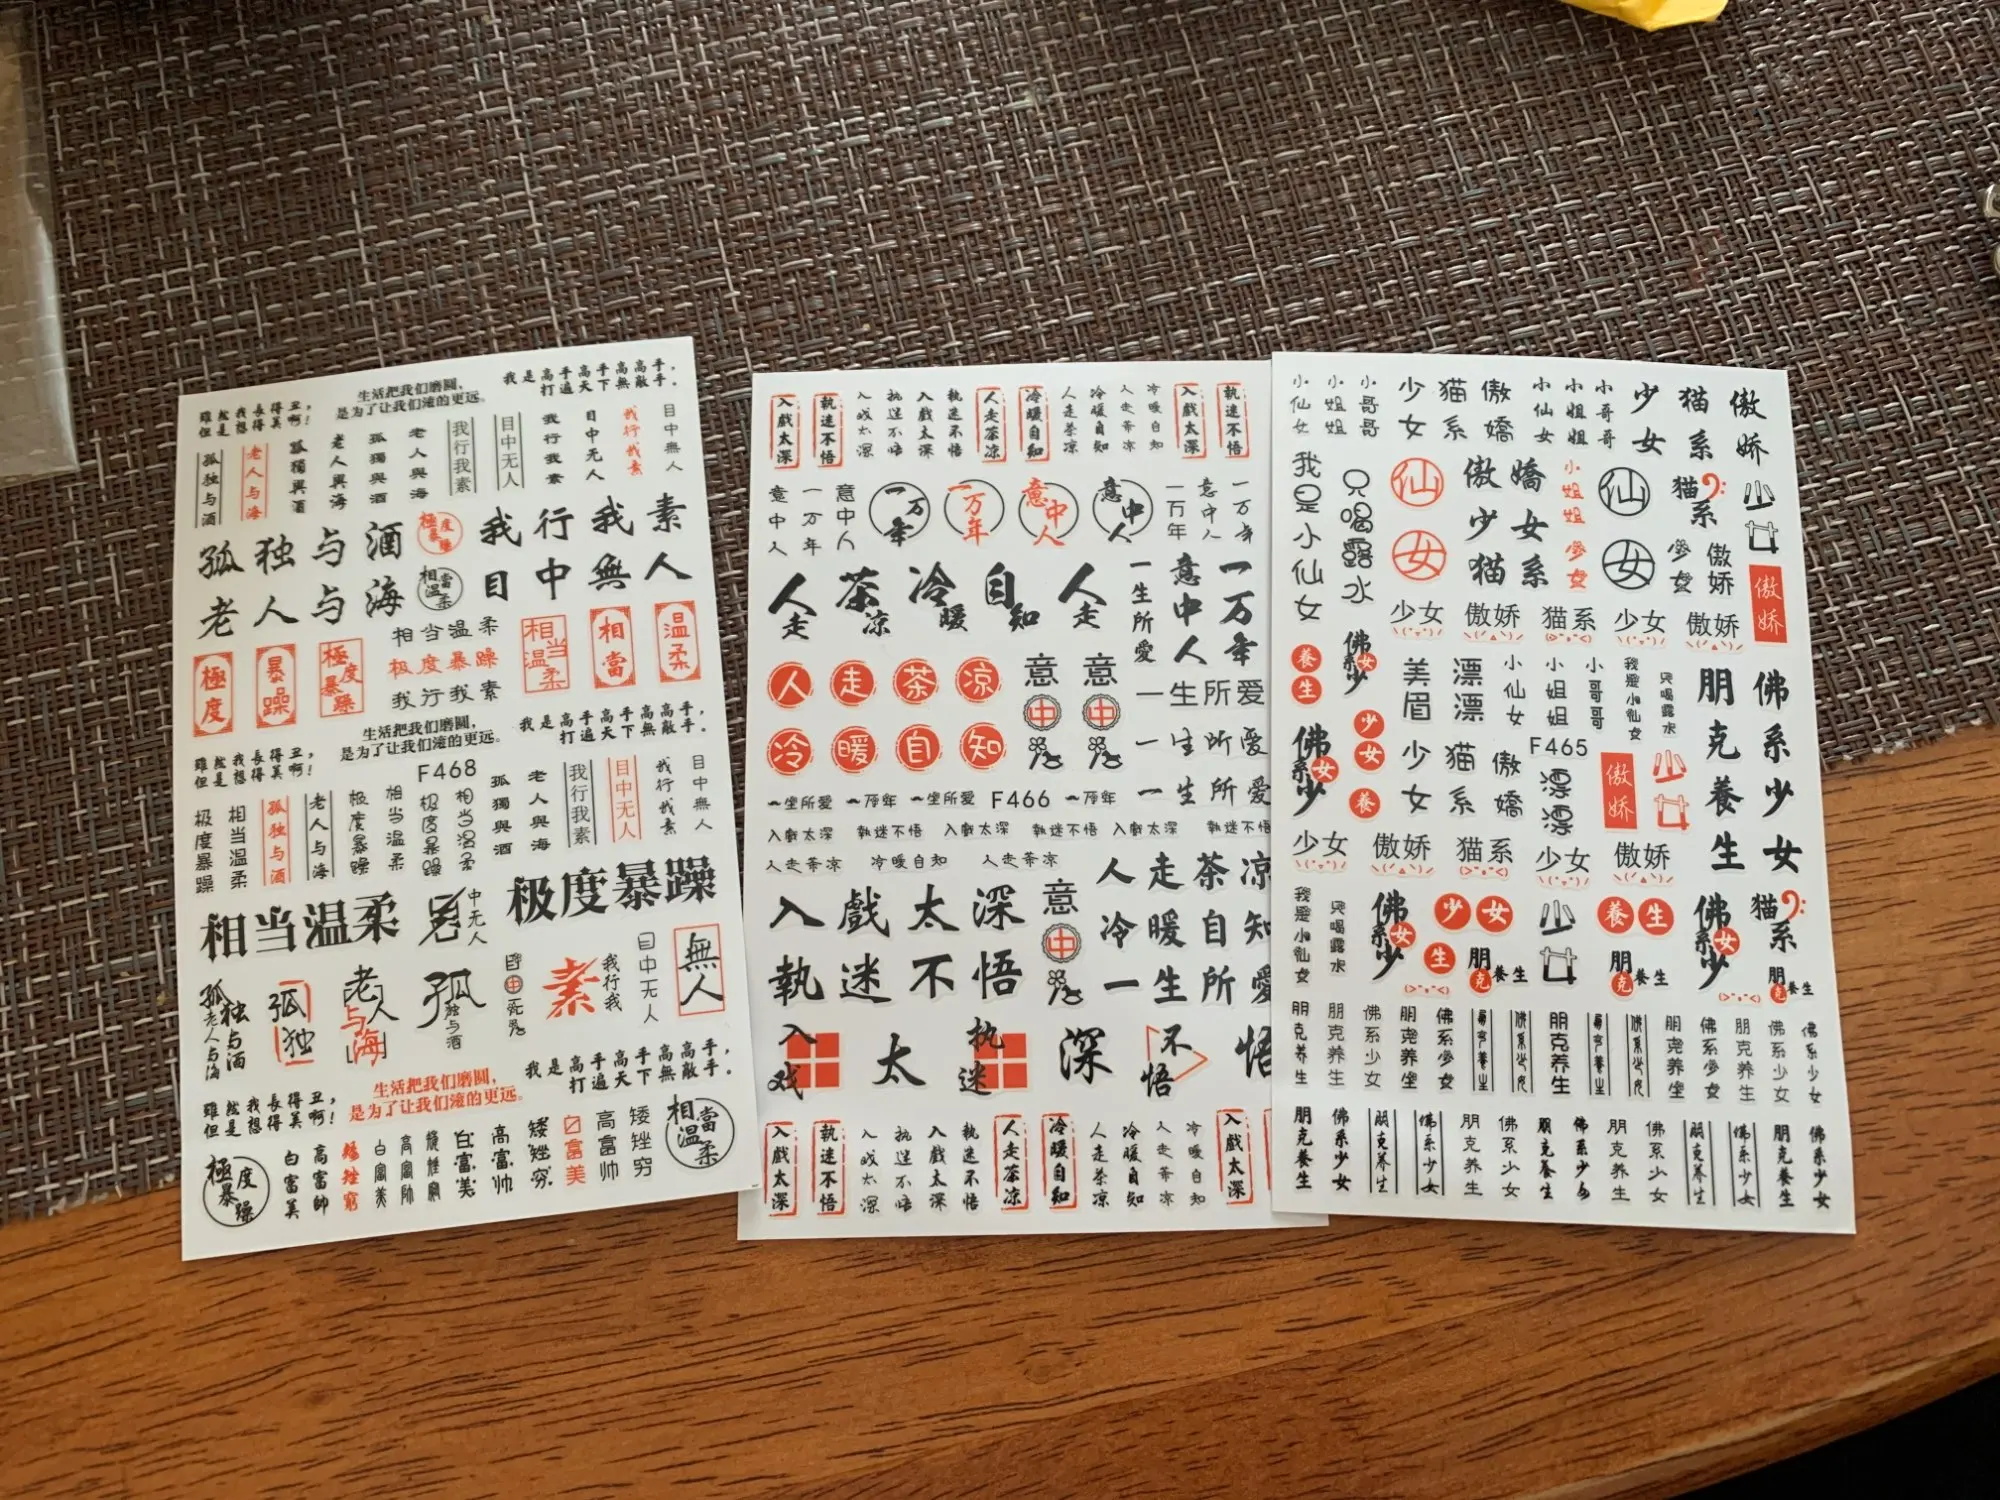 生活把我们磨圆，
是为了让我们滚的更远。
我是高手高手高高手，
打遍天下無敵手。
雖然我長得丑，
但是我想得美啊！
孤独与酒
老人与海
孤獨與酒
老人與海
孤獨與酒
老人與海
我行我素
目中无人
我行我素
目中无人
我行我素
目中無人
孤独与酒
極度暴躁
我行我素
老人与海
相當温柔
目中無人
極度
暴躁
極度暴躁
相当温柔
极度暴躁
我行我素
相当温柔
相當
温柔
雖然我長得丑，
但是我想得美啊！
生活把我们磨圆，
是为了让我们滚的更远。
我是高手高手高高手，
打遍天下無敵手。
F468
极度暴躁
相当温柔
孤独与酒
老人与海
极度暴躁
相当温柔
极度暴躁
相当温柔
孤獨與酒
老人與海
我行我素
目中无人
我行我素
目中無人
相当温柔
中无人
极度暴躁
孤独与酒
老人与海
孤独
老人与海
孤独与酒
素
我行我
目中无人
無人
雖然我長得丑，
但是我想得美啊！
生活把我们磨圆，
是为了让我们滚的更远。
我是高手高手高高手，
打遍天下無敵手。
極度暴躁
白富美
高富帥
矮矬窮
白富美
高富帅
矮矬窮
白富美
高富帅
矮矬穷
白富美
高富帅
矮矬穷
相當温柔
入戲太深
執迷不悟
入戏太深
执迷不悟
入戲太深
執迷不悟
人走茶凉
冷暖自知
人走茶凉
冷暖自知
人走茶凉
冷暖自知
入戲太深
執迷不悟
意中人
一万年
意中人
一万年
一万年
意中人
意中人
一万年
意中人
一万年
人走茶凉
冷暖自知
人走
一生所愛
意中人
一万年
人走茶凉
意中
意中
一生所爱
冷暖自知
一生所爱
一生所爱 一万年 一生所爱 F466 一万年
一生所愛
入戲太深 執迷不悟 入戲太深 執迷不悟 入戲太深 執迷不悟
人走茶凉 冷暖自知 人走茶凉
人走茶凉
入戲太深
意中
冷暖自知
執迷不悟
一生所愛
入戏
太
执迷
深
不悟
悟
入戲太深
執迷不悟
入戏太深
执迷不悟
入戲太深
執迷不悟
人走茶凉
冷暖自知
人走茶凉
冷暖自知
人走茶凉
冷暖自知
入戲太深
小仙女
小姐姐
小哥哥
少女
猫系
傲嬌
小仙女
小姐姐
小哥哥
少女
猫系
傲娇
我是小仙女
只喝露水
仙
女
傲嬌
少女
猫系
小姐姐
少女
仙
女
猫系
少女
少女
傲娇
傲娇
少女 傲娇 猫系 少女 傲娇
養生
佛系少女
美眉
漂漂
小仙女
小姐姐
小哥哥
我是小仙女
只喝露水
朋克養生
佛系少女
佛系少女
少女
養
少女
猫系
傲嬌
F465
漂漂
傲娇
少女
少女 傲娇 猫系 少女 傲娇
我是小仙女
只喝露水
佛系少女
少女
生
朋克養生
少女
養生
朋克養生
佛系少女
猫系
朋克養生
朋克养生
朋克养生
佛系少女
朋克养生
佛系少女
朋克養生
佛系少女
朋克养生
朋克養生
佛系少女
朋克养生
佛系少女
朋克养生
佛系少女
佛系少女
朋克養生
佛系少女
朋克养生
佛系少女
朋克养生
佛系少女
朋克養生
佛系少女
朋克养生
佛系少女
朋克养生
佛系少女
朋克養生
佛系少女